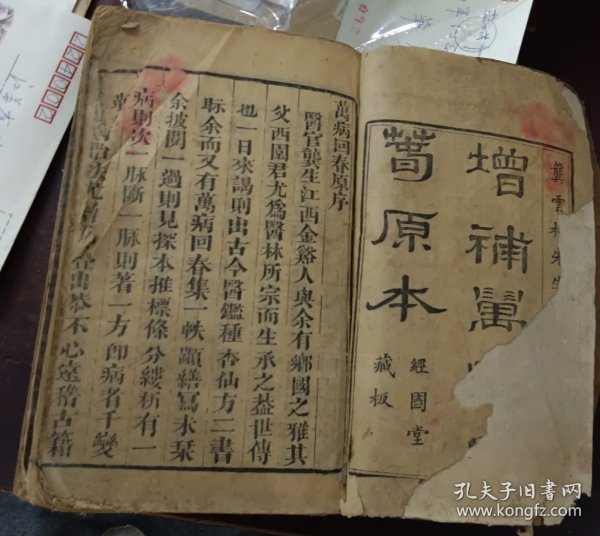 龔雲林先生
增補萬
萅原本
經國堂
藏板
萬病回春原序
醫官龔生江西金谿人與余有鄉國之雅其
父西園君尤為醫林所宗而生承之益世傳
也一日來謁則出古今醫鑑種杏仙方二書
眎余而又有萬病回春集一帙顓繕寫未栞
余披閱一過則見探本推標條分縷析有一
病則次一脉斷一脉則著一方卽病者千變
出恭不心遠稽古籍
孔夫子旧书网
www.kongfz.com